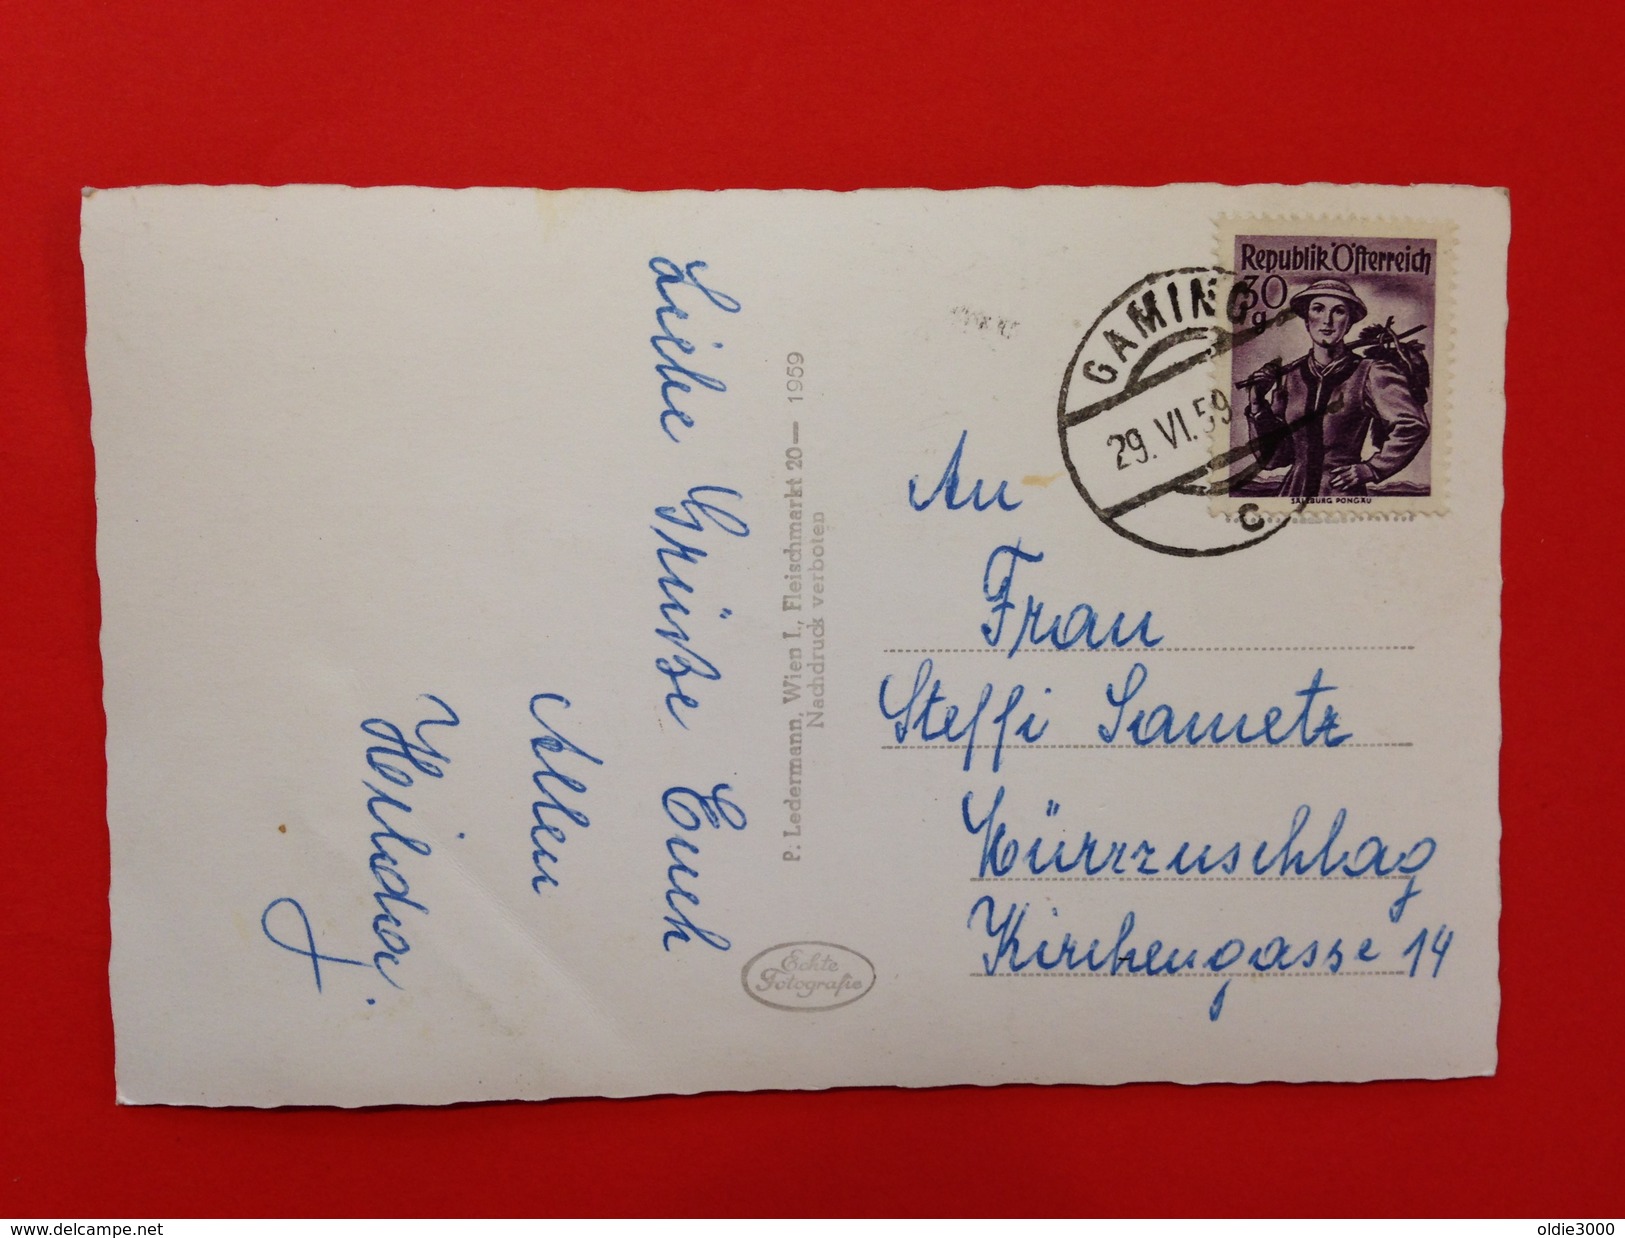 Liebe Grüße Euch
Allen
Hilda.
P. Ledermann, Wien I., Fleischmarkt 20 — 1959
Nachdruck verboten
Echte
Fotografie
Republik Österreich
30
g
SALZBURG PONGAU
GAMING
29. VI. 59
c
An
Frau
Steffi Sametz
Mürzzuschlag
Kirchengasse 14
www.delcampe.net
oldie3000